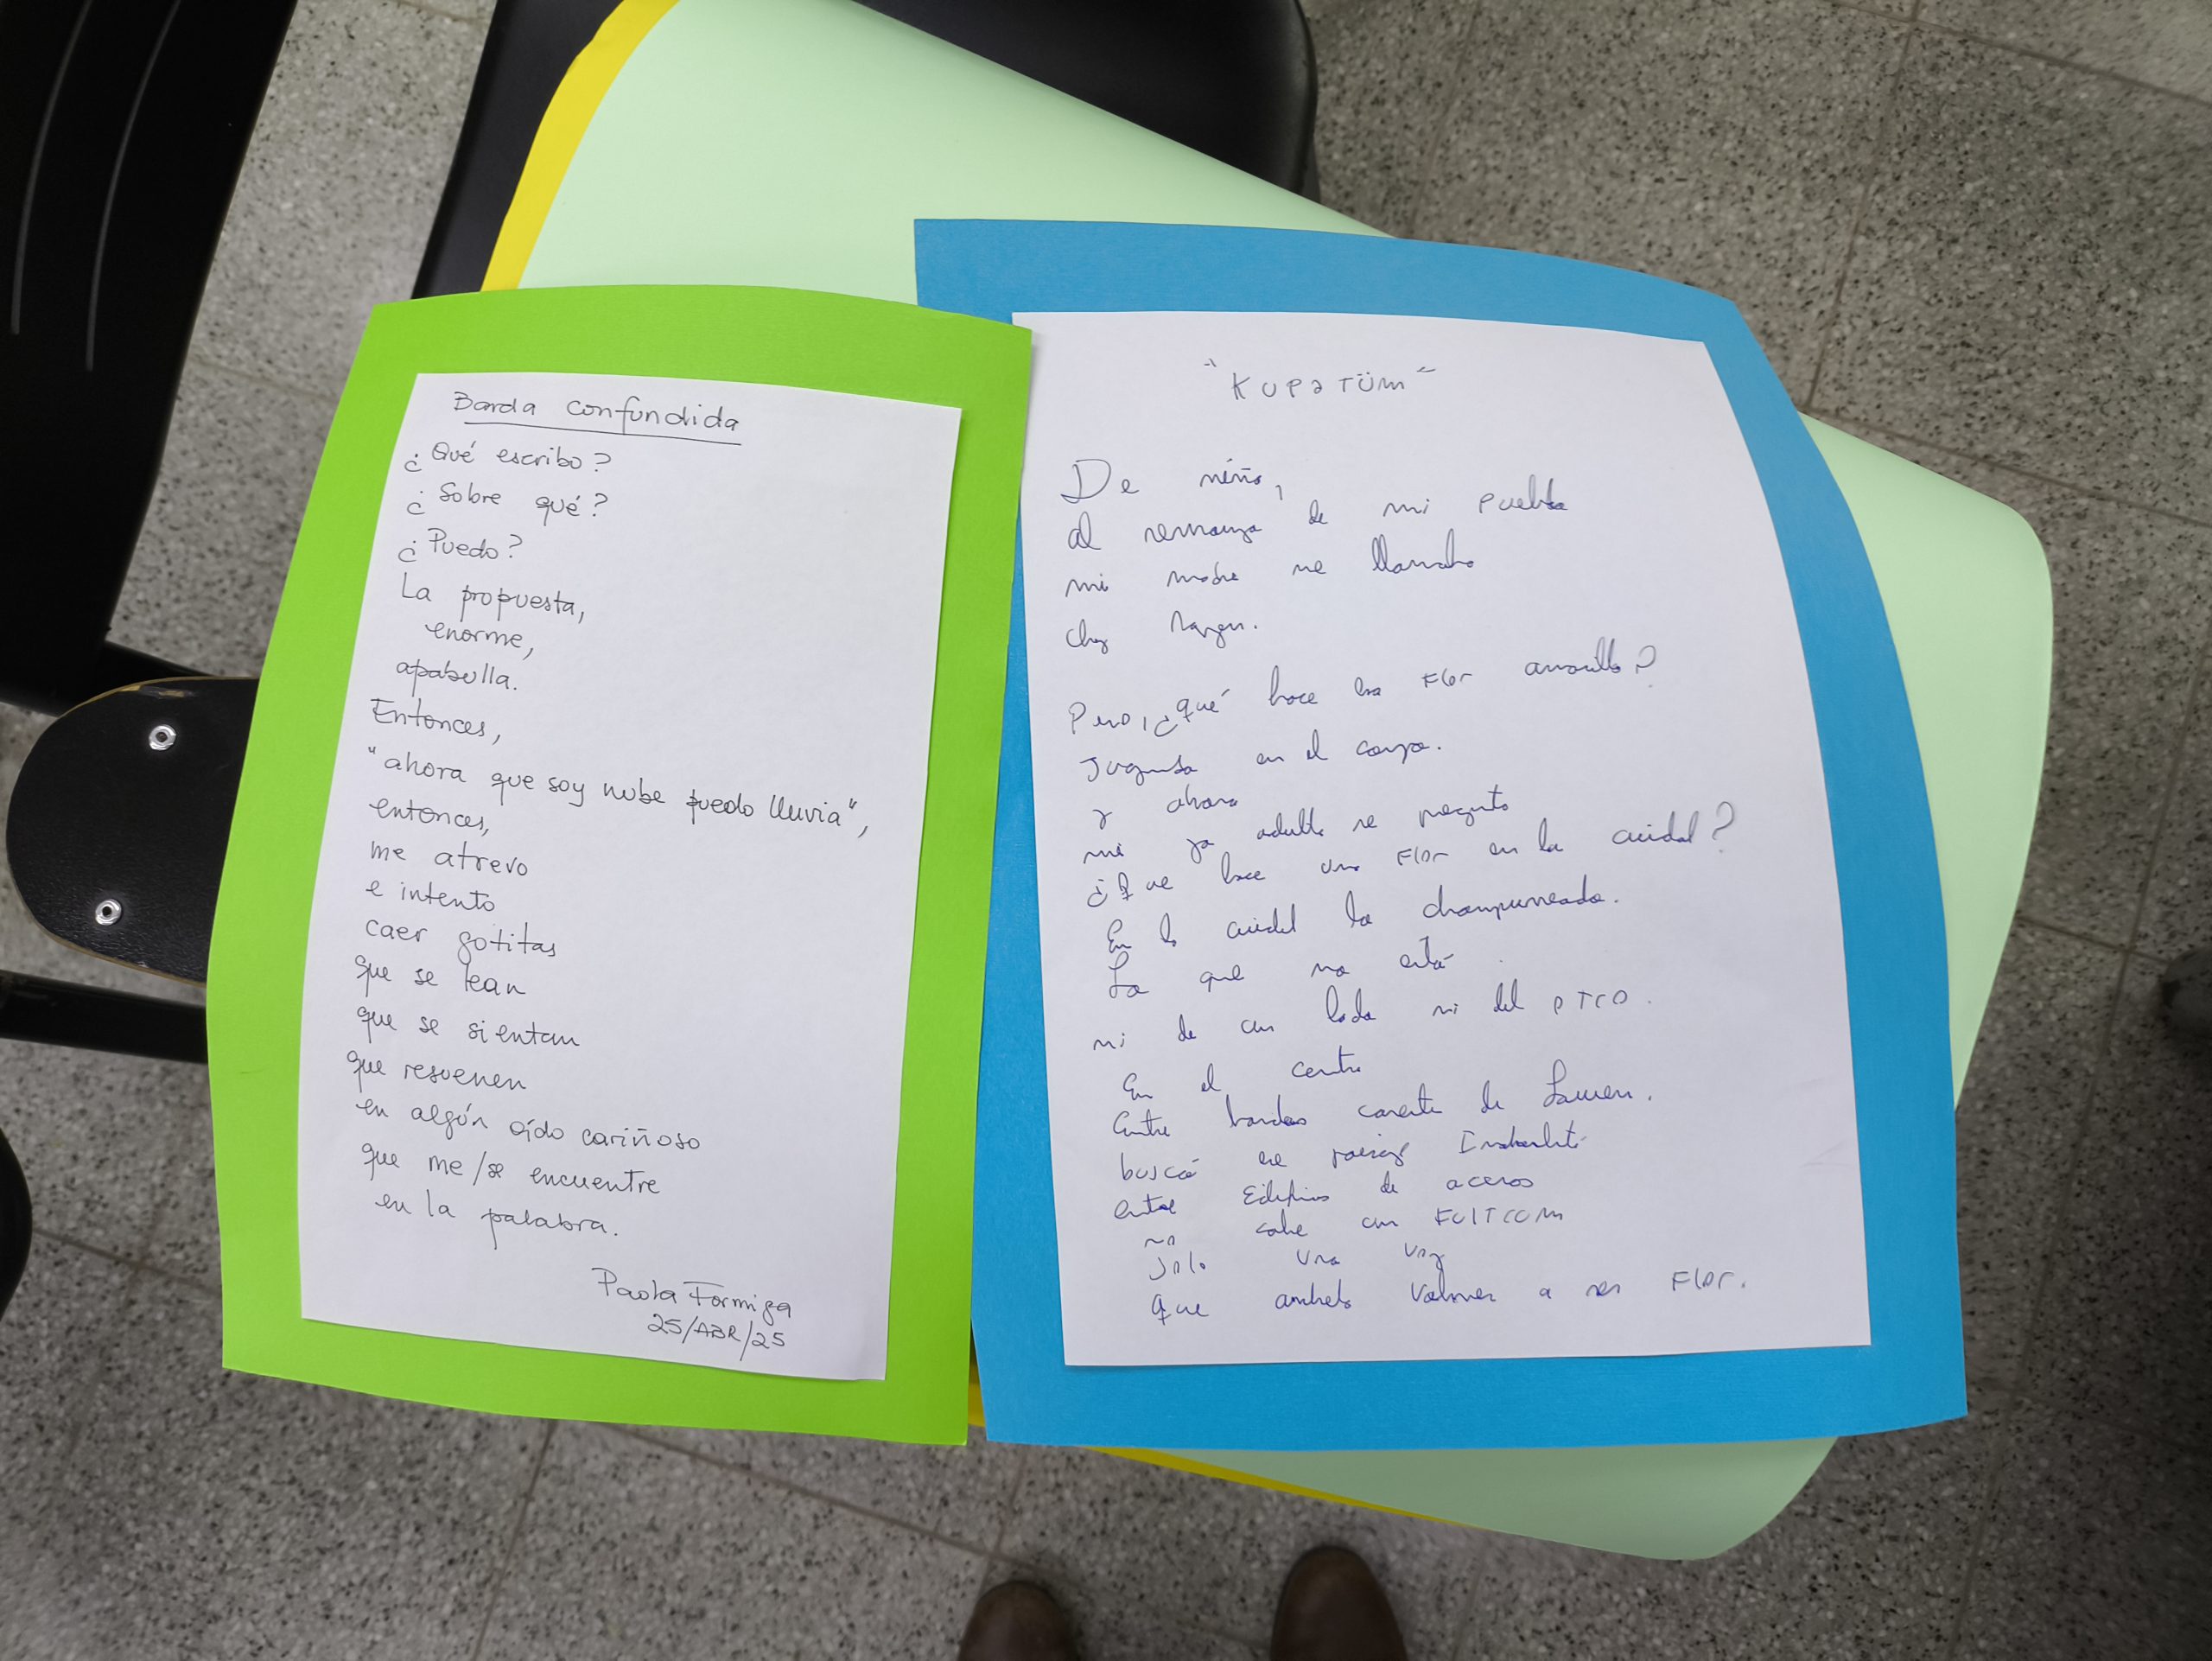 Barda confundida
¿Qué escribo?
¿Sobre qué?
¿Puedo?
La propuesta,
enorme,
apabulla.
Entonces,
"ahora que soy nube puedo lluvia",
entonces,
me atrevo
e intento
caer gotitas
que se lean
que se sientan
que resuenen
en algún oído cariñoso
que me/se encuentre
en la palabra.
Paola Formiga
25/ABR/25
"KUPATÜM"
De niño,
al remanzo de mi pueblo
mi madre me llamaba
Pero, ¿qué hace esa Flor amarilla?
Jugando en el campo.
y ahora
mi yo adulto se pregunta
¿Que hace una Flor en la ciudad?
En la ciudad la champurneada.
La que no está
ni de un lado ni del otro.
En el centro
Entre bardas carente de
busco
entre Edificios de aceros
no sabe un
Solo una vez
que anhelo volver a ser Flor.